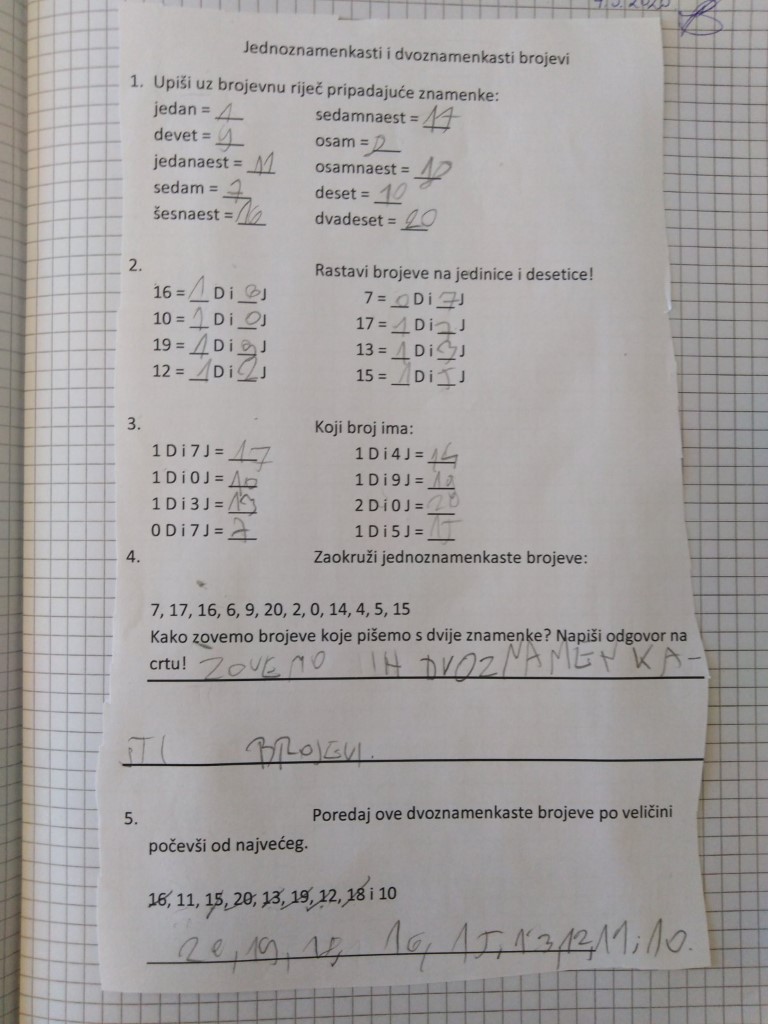 9.3.2020
Jednoznamenkasti i dvoznamenkasti brojevi
1. Upiši uz brojevnu riječ pripadajuće znamenke:
jedan = 1 sedamnaest = 17
devet = 9 osam = 8
jedanaest = 11 osamnaest = 18
sedam = 7 deset = 10
šesnaest = 16 dvadeset = 20
2. Rastavi brojeve na jedinice i desetice!
16 = 1 D i 6 J 7 = 0 D i 7 J
10 = 1 D i 0 J 17 = 1 D i 7 J
19 = 1 D i 9 J 13 = 1 D i 3 J
12 = 1 D i 2 J 15 = 1 D i 5 J
3. Koji broj ima:
1 D i 7 J = 17 1 D i 4 J = 14
1 D i 0 J = 10 1 D i 9 J = 19
1 D i 3 J = 13 2 D i 0 J = 20
0 D i 7 J = 7 1 D i 5 J = 15
4. Zaokruži jednoznamenkaste brojeve:
7, 17, 16, 6, 9, 20, 2, 0, 14, 4, 5, 15
Kako zovemo brojeve koje pišemo s dvije znamenke? Napiši odgovor na
crtu! ZOVEMO IH DVOZNAMENKA-
STI BROJEVI.
5. Poredaj ove dvoznamenkaste brojeve po veličini
počevši od najvećeg.
16, 11, 15, 20, 13, 19, 12, 18 i 10
20, 19, 18, 16, 15, 13, 12, 11, 10.